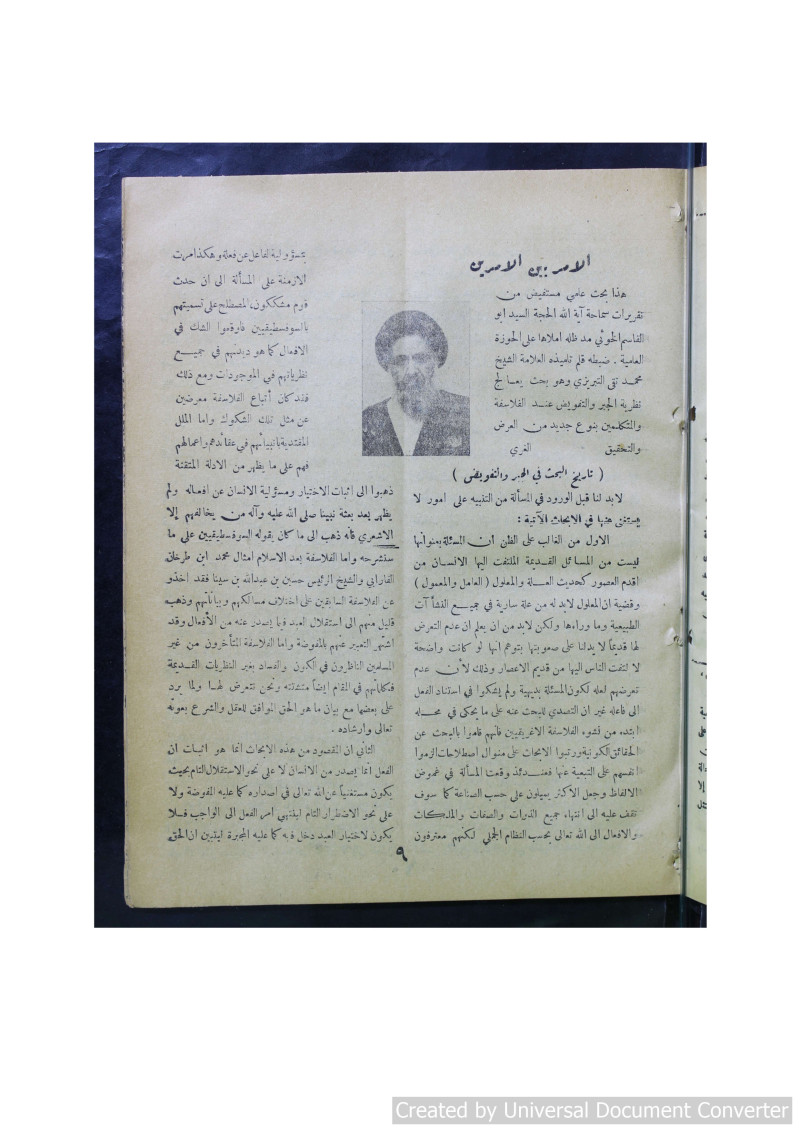 الامر بين الامرين
هذا بحث علمي مستفيض من
تقريرات سماحة آية الله الحجة السيد ابو
القاسم الخوئي مد ظله املاها على الحوزة
العلمية . ضبطه قلم تلميذه العلامة الشيخ
محمد تقي التبريزي وهو بحث يعالج
نظرية الجبر والتفويض عند الفلاسفة
والمتكلمين بنوع جديد من العرض
والتحقيق الغري
( تاريخ البحث في الجبر والتفويض )
لابد لنا قبل الورود في المسألة من التنبيه على امور لا
يستغنى عنها في الابحاث الآتية :
الاول من الغالب على الظن أن المسئلة بعنوانها
ليست من المسائل القديمة الملتفت اليها الانسان من
اقدم العصور كحديث العلة والمعلول ( العامل والمعمول )
وقضية ان المعلول لابد له من علة سارية في جميع النشآت
الطبيعية وما وراءها ولكن لابد من ان يعلم ان عدم التعرض
لها قديماً لا يدلنا على صعوبتها بتوهم انها لو كانت واضحة
لالتفت الناس اليها من قديم الاعصار وذلك لأن عدم
تعرضهم لعله لكون المسئلة بديهية ولم يشكوا في استناد الفعل
الى فاعله غير ان التصدي للبحث عنه على ما يحكى في محله
ابتدء من نشوء الفلاسفة الاغريقيين فانهم قاموا بالبحث عن
الحقائق الكونية ورتبوا الابحاث على منوال اصطلاحات الزموا
انفسهم على التبعية عنها فعندئذ وقعت المسألة في غموض
الالفاظ وجعل الأكثر يميلون على حسب الصناعة كما سوف
نقف عليه الى انتهاء جميع الذوات والصفات والملكات
والافعال الى الله تعالى بحسب النظام الجملي لكنهم معترفون
بمسؤولية الفاعل عن فعله وهكذا مرت
الازمنة على المسألة الى ان حدث
قوم مشككون المصطلح على تسميتهم
بالسوفسطيقيين فاوقعوا الشك في
الافعال كما هو ديدنهم في جميع
نظرياتهم في الموجودات ومع ذلك
فقد كان أتباع الفلاسفة معرضين
عن مثل تلك الشكوك واما الملل
المقتدية بانبيائهم في عقائدهم واعمالهم
فهم على ما يظهر من الادلة المتقنة
ذهبوا الى اثبات الاختيار ومسؤلية الانسان عن افعاله ولم
يظهر بعد بعثة نبينا صلى الله عليه وآله من يخالفهم إلا
الاشعري فأنه ذهب الى ما كان يقوله السوفسطيقيين على ما
سنشرحه واما الفلاسفة بعد الاسلام امثال محمد ابن طرخان
الفارابي والشيخ الرئيس حسين بن عبدالله بن سينا فقد اخذو
عن الفلاسفة السابقين على اختلاف مسالكهم وبياناتهم وذهب
قليل منهم الى استقلال العبد فيما يصدر عنه من الأفعال وقد
اشتهر التعبير عنهم بالمفوضة واما الفلاسفة المتأخرون من غير
المسلمين الناظرون في الكون والفساد بغير النظريات القديمة
فكلماتهم في المقام ايضاً متشتتة ونحن نتعرض لها ولما يرد
على بعضها مع بيان ما هو الحق الموافق للعقل والشرع بعونه
تعالى وارشاده .
الثاني ان المقصود من هذه الابحاث انما هو اثبات ان
الفعل انما يصدر من الانسان لا على نحو الاستقلال التام بحيث
يكون مستغنياً عن الله تعالى في اصداره كما عليه المفوضة ولا
على نحو الاضطرار التام لينتهي امر الفعل الى الواجب فلا
يكون لاختيار العبد دخل فيه كما عليه المجبرة ليتبين ان الحق
٩
Created by Universal Document Converter